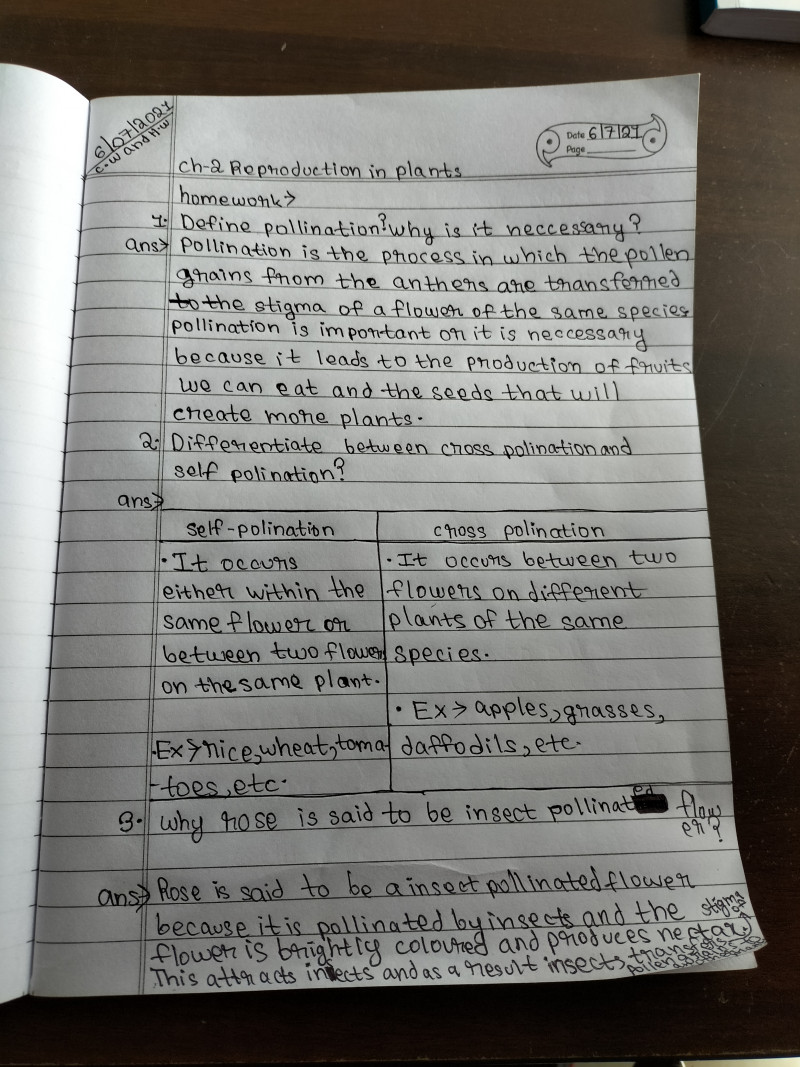 6/07/2021
c.w and H.w
Date 6/7/21
Page
ch-2 Reproduction in plants
homework>
1. Define pollination? why is it neccessary?
ans> Pollination is the process in which the pollen
grains from the anthers are transferred
to the stigma of a flower of the same species
pollination is important or it is neccessary
because it leads to the production of fruits
we can eat and the seeds that will
create more plants.
2. Differentiate between cross polination and
self polination?
ans>
self-polination cross polination
• It occurs
either within the
same flower or
between two flower
on the same plant.
• Ex> rice, wheat, toma-
-toes, etc.
• It occurs between two
flowers on different
plants of the same
species.
• Ex> apples, grasses,
daffodils, etc.
3. why rose is said to be insect pollinated flow
er?
ans> Rose is said to be a insect pollinated flower
because it is pollinated by insects and the
flower is brightly coloured and produces nectar
This attracts insects and as a result insects transfers
pollen grains
stigma